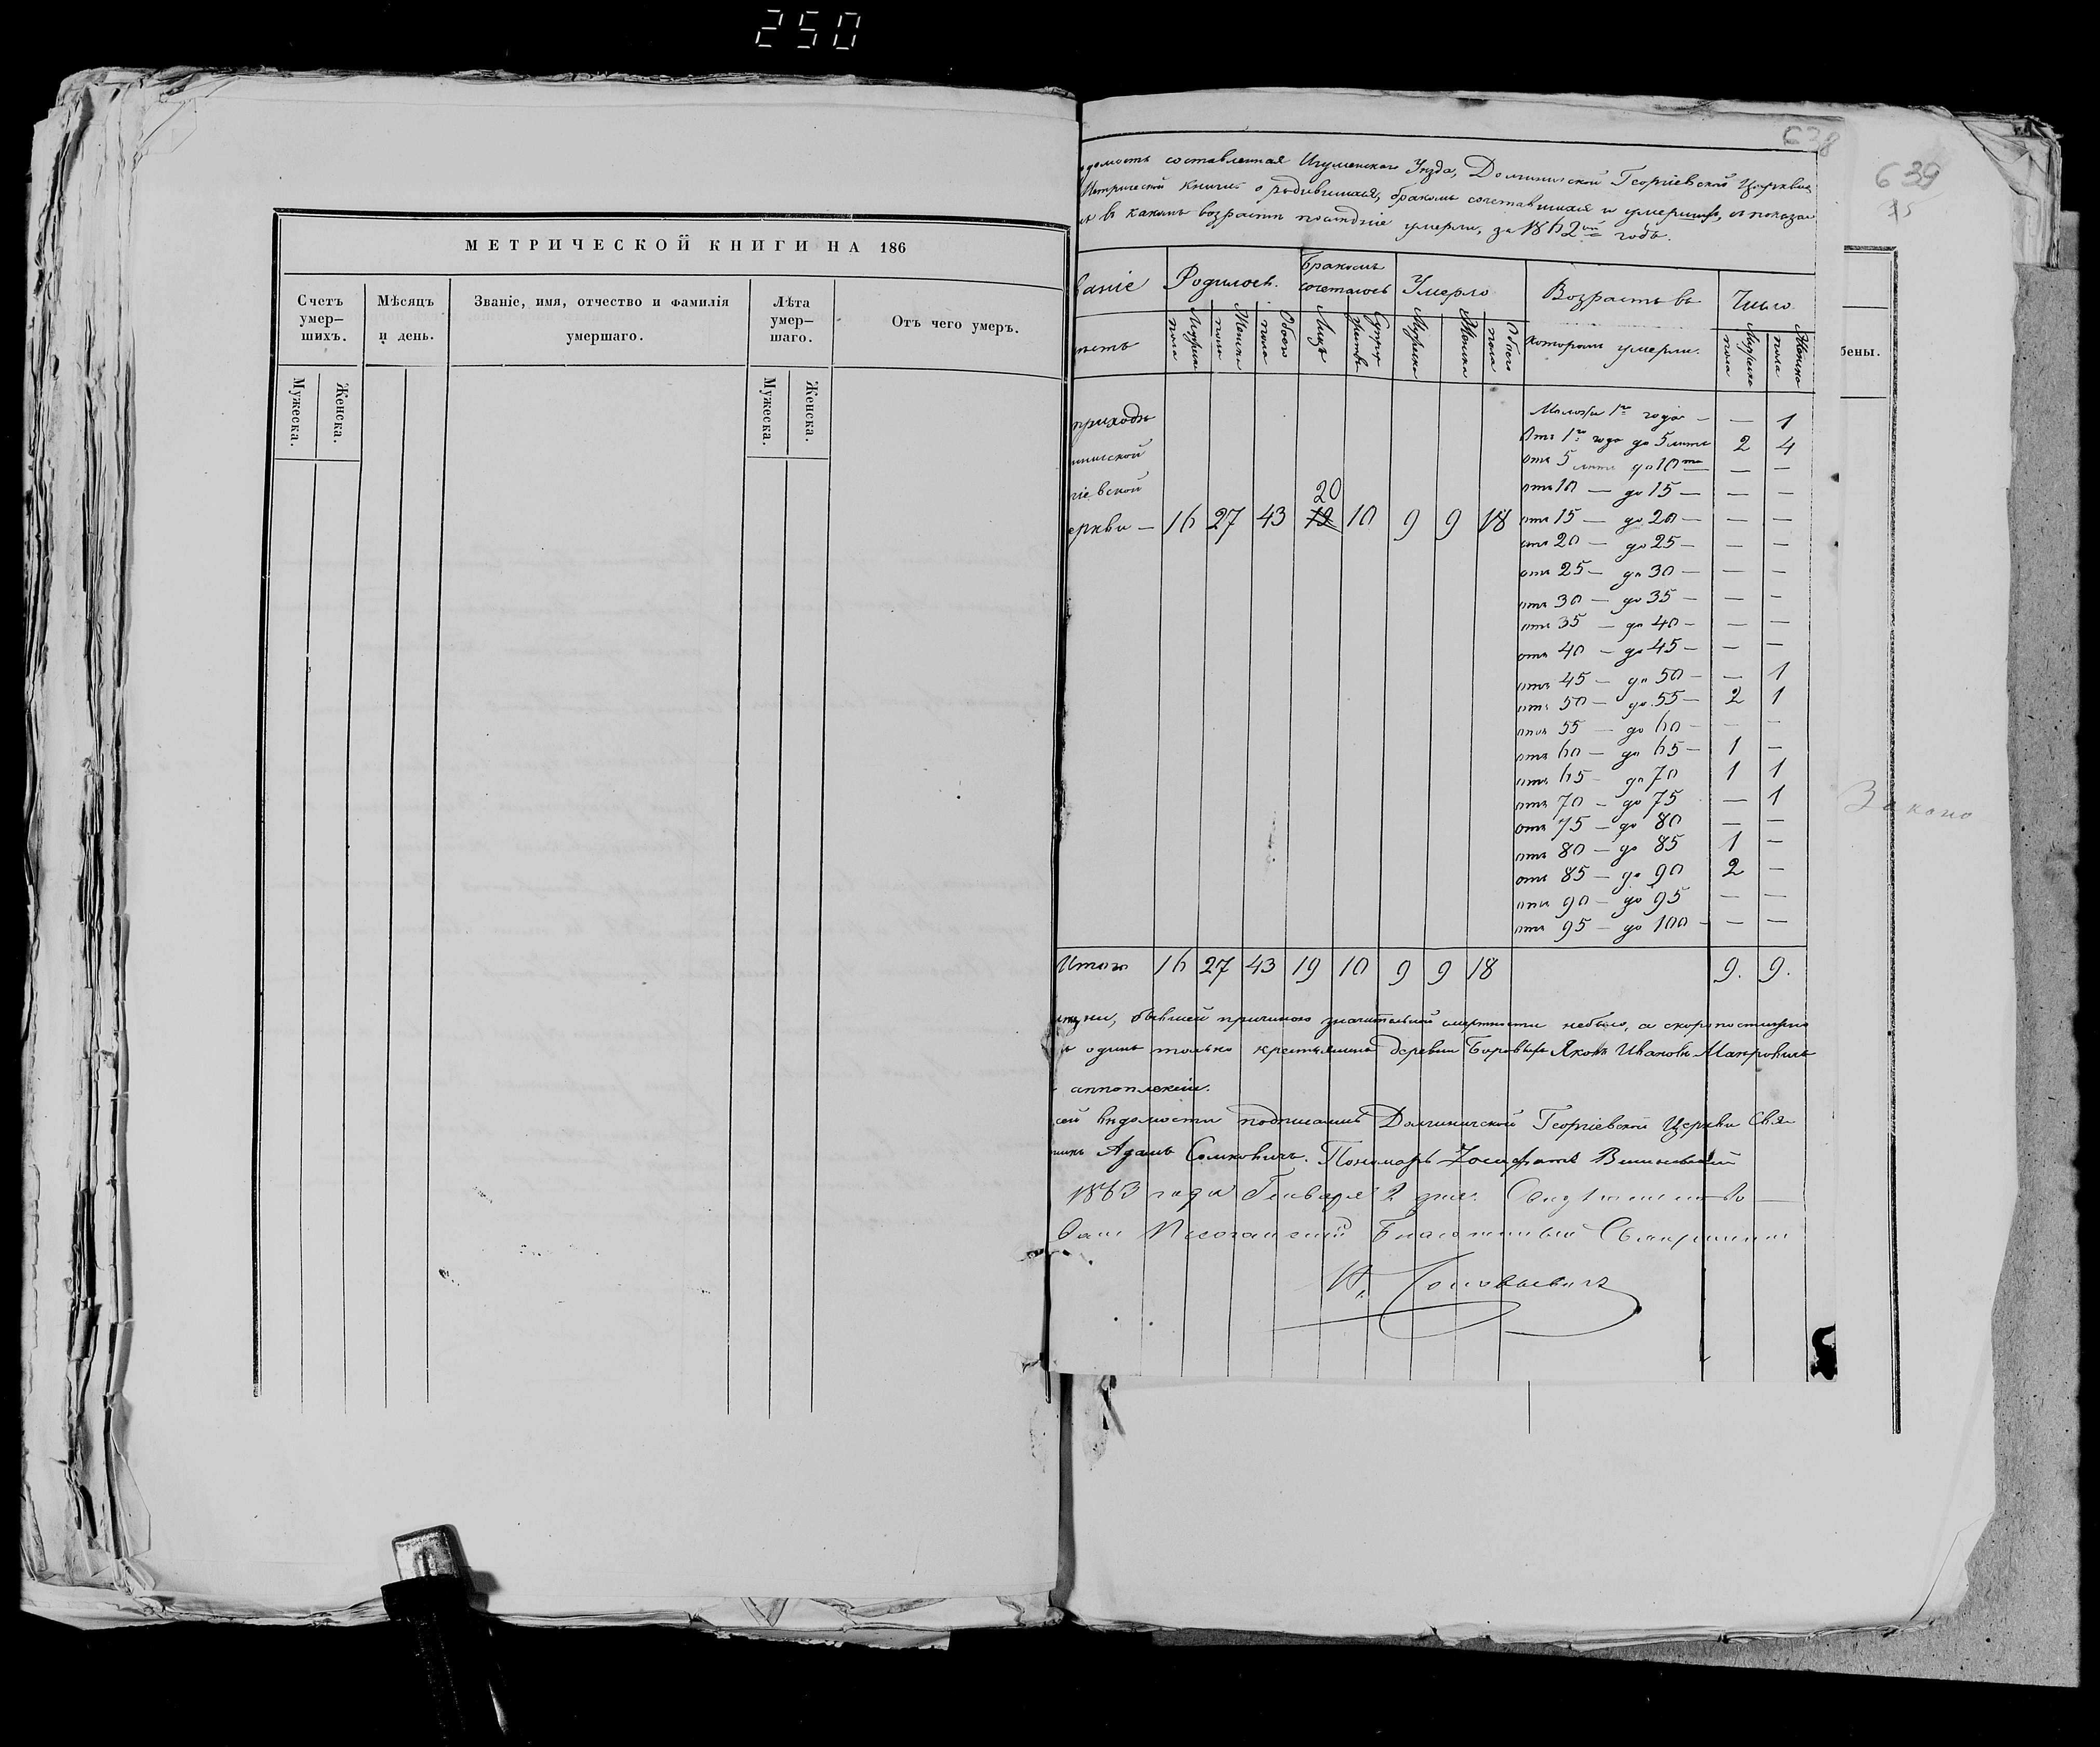 250
МЕТРИЧЕСКОЙ КНИГИ НА 186
Счетъ умер–шихъ.
Мѣсяцъ и день.
Званіе, имя, отчество и фамилія умершаго.
Лѣта умер–шаго.
Отъ чего умеръ.
Мужеска.
Женска.
Мужеска.
Женска.
638
639
домость составленная Игуменскаго Уѣзда, Долгиничской Георгіевской Церкви
Метрической книги о родившихся, бракомъ сочетавшихся и умершихъ, съ показа
въ какомъ возрастѣ послѣдніе умерли, за 1862й годъ.
ваніе
Родилось.
Бракомъ сочеталось
Умерло
Возрастъ въ
Число
которомъ умерли.
Мужска пола
Женска пола
Обоего пола
Лицъ
Мужска
Женска
Обоего пола
Мужска пола
Женска пола
бены.
приходѣ
ничской
гіевской
20
еркви — 16 27 43 19 10 9 9 18
1го года — — 1
Отъ 1го года до 5 лѣтъ 2 4
отъ 5 лѣтъ до 10ти — —
отъ 10 — до 15 — — —
отъ 15 — до 20 — — —
отъ 20 — до 25 — — —
отъ 25 — до 30 — — —
отъ 30 — до 35 — — —
отъ 35 — до 40 — — —
отъ 40 — до 45 — — —
отъ 45 — до 50 — — 1
отъ 50 — до 55 — 2 1
отъ 55 — до 60 — — —
отъ 60 — до 65 — 1 —
отъ 65 — до 70 1 1
отъ 70 — до 75 — 1
отъ 75 — до 80 — —
отъ 80 — до 85 1 —
отъ 85 — до 90 2 —
отъ 90 — до 95 — —
отъ 95 — до 100 — — —
Итого 16 27 43 19 10 9 9 18 9. 9.
бывшей причиною значительной смертности небыло, а скоропостижно
одинъ только крестьянинъ деревни Яковъ Ивановъ
апноплексіи.
сей вѣдомости подписались Долгиничской Георгіевской Церкви Свя
Адамъ Сомковичъ. Пономарь
1863 года Генваря 2 дня.
Благочинный Священникъ